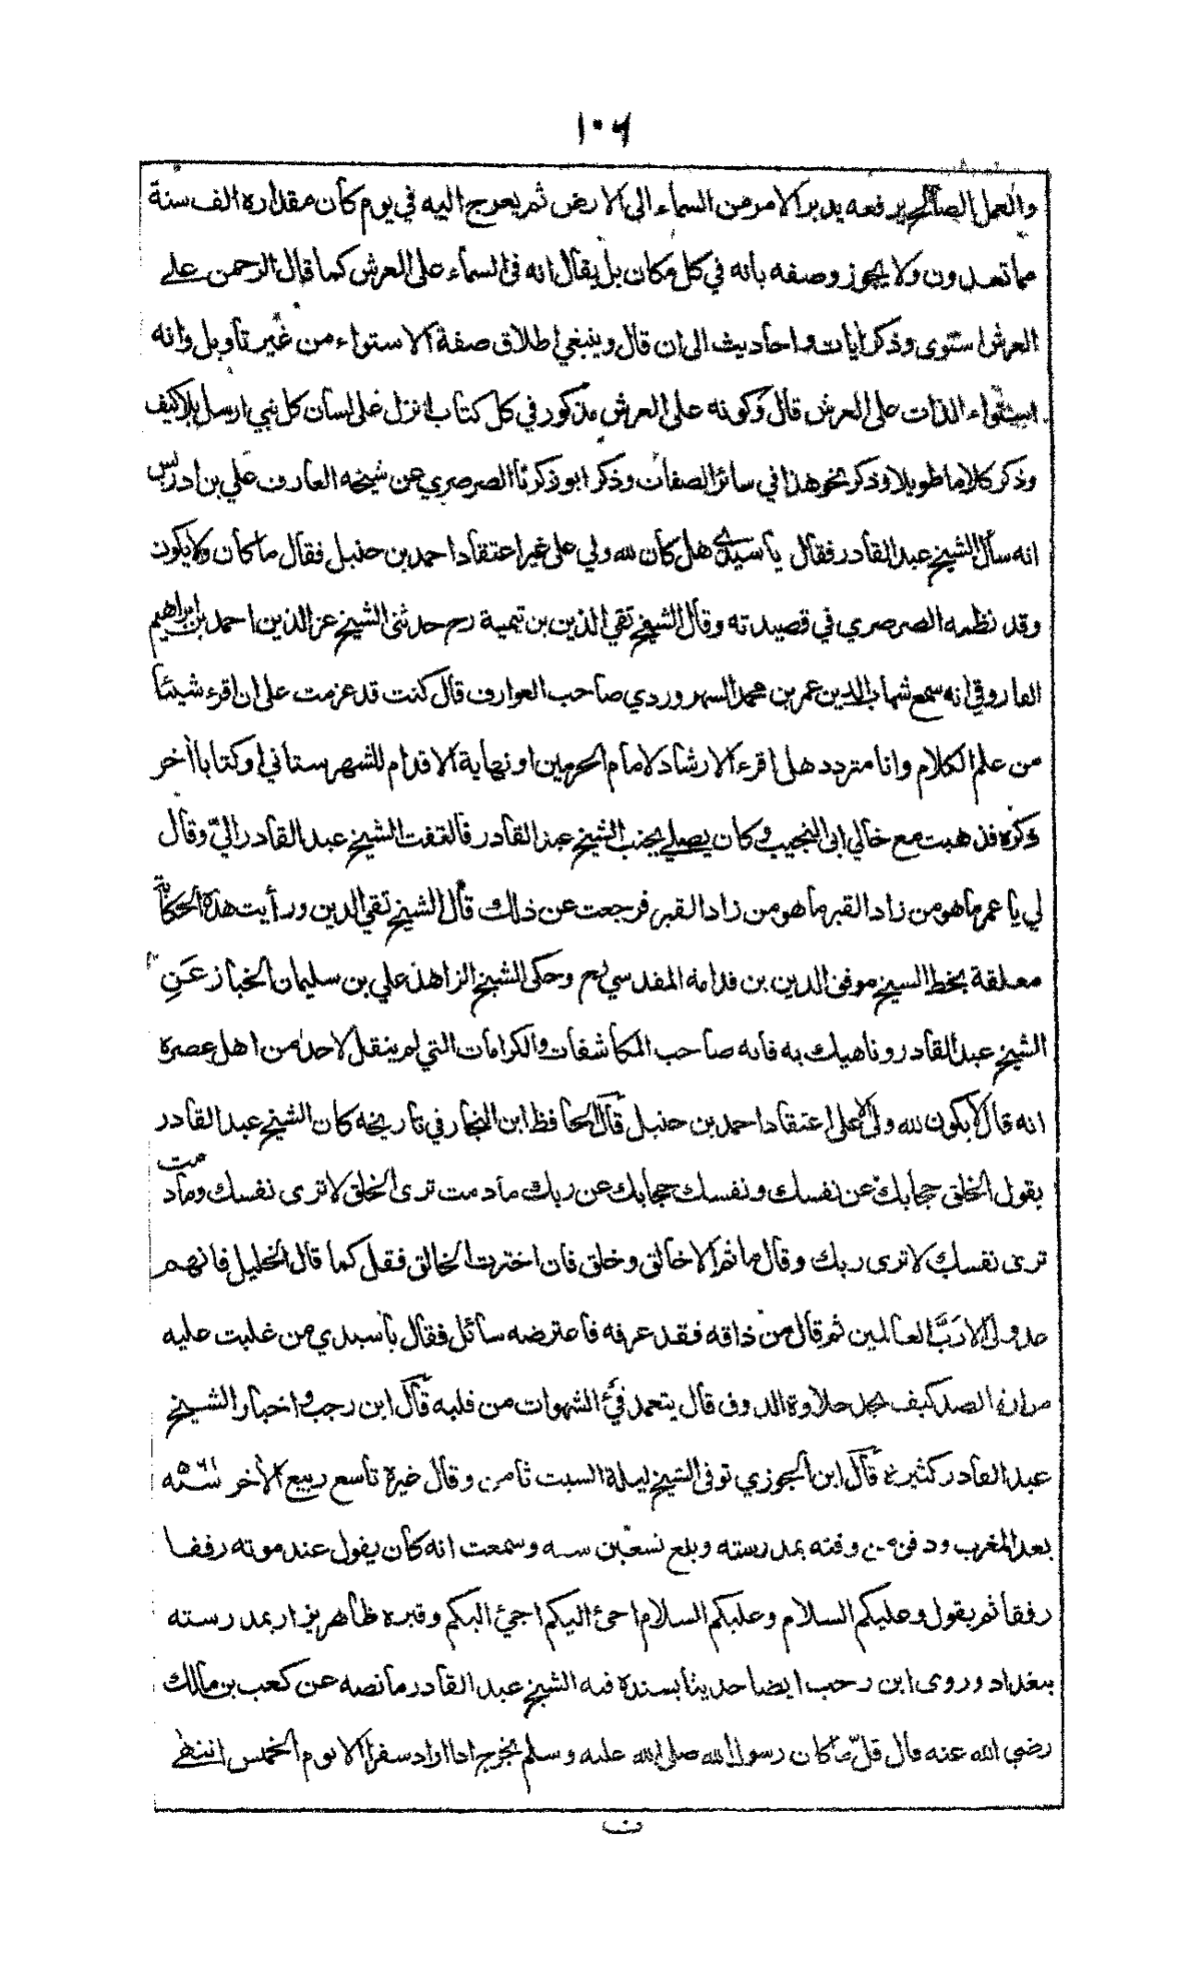 ١٠٦
والعمل الصالح يرفعه يدبر الامر من السماء الى الارض ثم يعرج اليه في يوم كان مقداره الف سنة
مما تعدون ولا يجوز وصفه بانه في كل مكان بل يقال انه في السماء على العرش كما قال الرحمن على
العرش استوى وذكر ايات واحاديث الى ان قال وينبغي اطلاق صفة الاستواء من غير تاويل وانه
استواء الذات على العرش قال وكونه على العرش مذكور في كل كتاب انزل على لسان كل نبي ارسل بلا كيف
وذكر كلاما طويلا وذكر نحو هذا في سائر الصفات وذكر ابو زكريا الصرصري عن شيخه العارف علي بن ادريس
انه سأل الشيخ عبد القادر فقال يا سيدي هل كان لله ولي على غير اعتقاد احمد بن حنبل فقال ما كان ولا يكون
وقد نظمه الصرصري في قصيدته وقال الشيخ تقي الدين بن تيمية رح حدثنى الشيخ عز الدين احمد بن ابراهيم
الفاروقي انه سمع شهاب الدين عمر بن محمد السهروردي صاحب العوارف قال كنت قد عزمت على ان اقرء شيئا
من علم الكلام وانا متردد هل اقرء الارشاد لامام الحرمين او نهاية الاقدام للشهرستاني او كتابا آخر
ذكره فذهبت مع خالي ابى النجيب وكان يصلي بجنب الشيخ عبد القادر فالتفت الشيخ عبد القادر اليّ وقال
لي يا عمر ما هو من زاد القبر ما هو من زاد القبر فرجعت عن ذلك قال الشيخ تقي الدين ورأيت هذه الحكاية
معلقة بخط الشيخ موفق الدين بن قدامه المقدسي رح وحكى الشيخ الزاهد علي بن سليمان الخباز عَنِ
الشيخ عبد القادر وناهيك به فانه صاحب المكاشفات والكرامات التي لم ينقل لاحد من اهل عصره
انه قال لا يكون لله ولي الا على اعتقاد احمد بن حنبل قال الحافظ ابن النجار في تاريخه كان الشيخ عبد القادر
يقول الخلق حجابك عن نفسك ونفسك حجابك عن ربك مادمت ترى الخلق لا ترى نفسك ومادمت
ترى نفسك لا ترى ربك وقال ما ثم الا خالق وخلق فان اخترت الخالق فقل كما قال الخليل فانهم
عدو لى الا رَبَّ العالمين ثم قال من ذاقه فقد عرفه فاعترضه سائل فقال يا سيدي من غلبت عليه
مرارة الصد كيف يجد حلاوة الذوق قال يتعمد قئ الشهوات من قلبه قال ابن رجب واخبار الشيخ
عبد القادر كثيرة قال ابن الجوزي توفى الشيخ ليلة السبت ثامن وقال غيره تاسع ربيع الآخر سنه ٥٦١
بعد المغرب ودفن من وقته بمدرسته وبلغ تسعين سنه وسمعت انه كان يقول عند موته رفقا
رفقا ثم يقول وعليكم السلام وعليكم السلام اجئ اليكم اجئ اليكم وقبره ظاهر يزار بمدرسته
ببغداد وروى ابن رجب ايضا حديثا بسنده فيه الشيخ عبد القادر ما نصه عن كعب بن مالك
رضي الله عنه قال قلّ ما كان رسول الله صلى الله عليه وسلم يخرج اذا اراد سفرا الا يوم الخمس انتهى